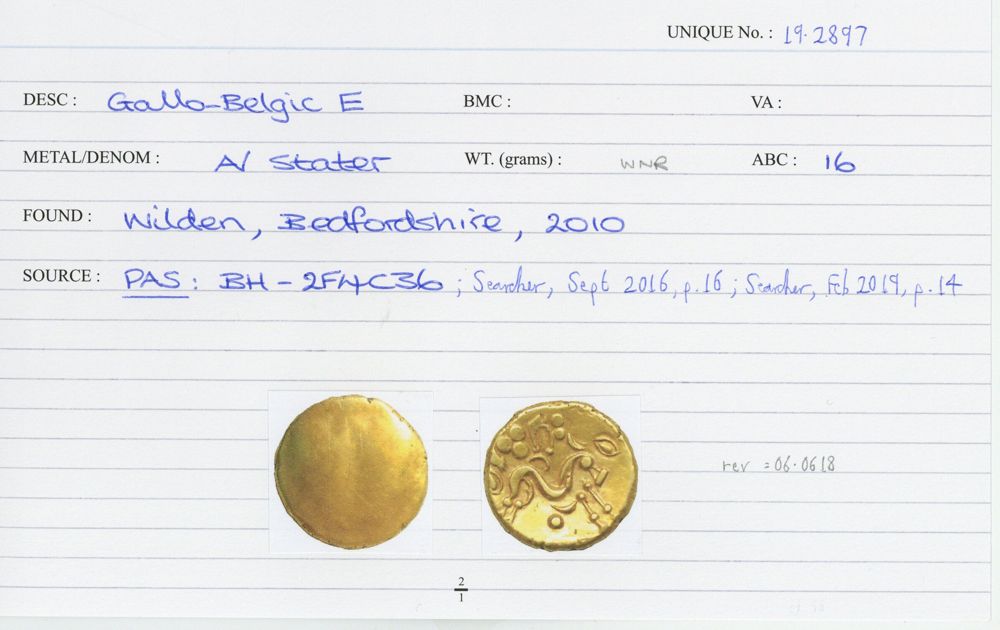 UNIQUE No. : 19.2897
DESC : Gallo-Belgic E BMC : VA :
METAL/DENOM : A/ Stater WT. (grams) : WNR ABC : 16
FOUND : Wilden, Bedfordshire, 2010
SOURCE : PAS : BH - 2F4C36 ; Searcher, Sept 2016, p.16 ; Searcher, Feb 2019, p.14
rev = 06.0618
2
1